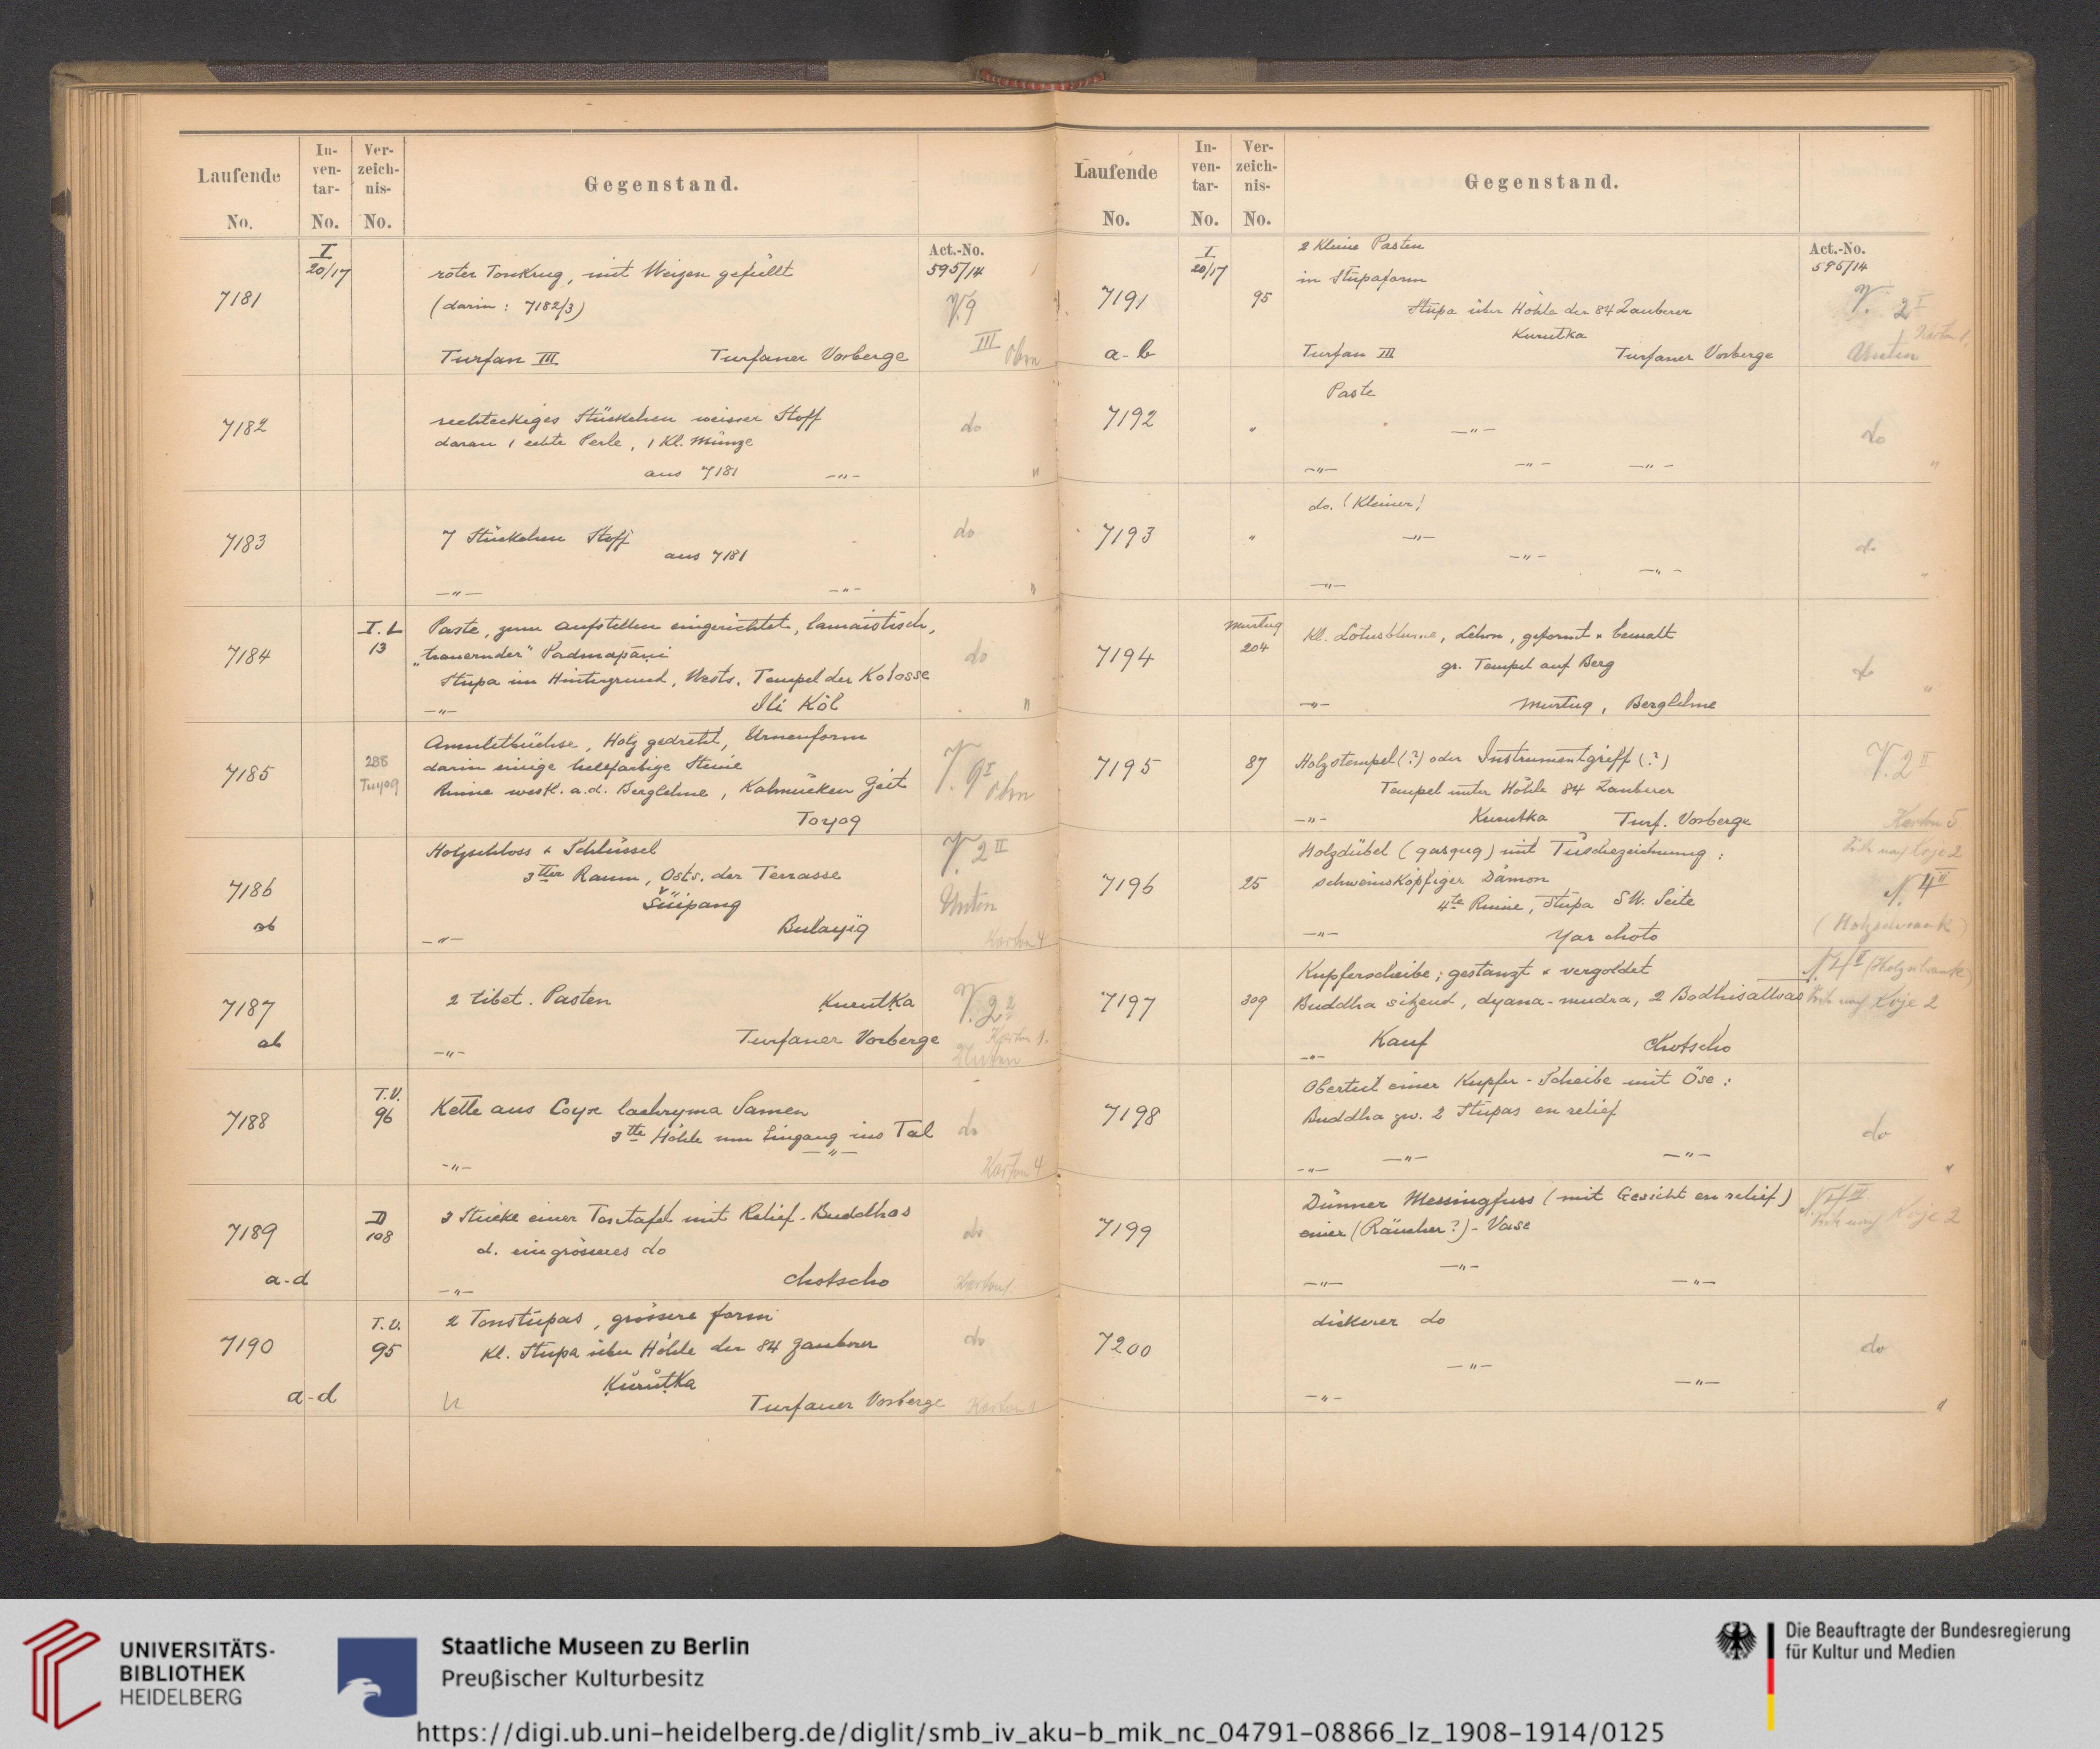 Laufende No.
In-ven-tar- No.
Ver-zeich-nis- No.
Gegenstand.
Act.-No.
I 20/17
595/14
7181
roter Tonkrug, mit Weizen gefüllt
(darin: 7182/3)
V.9
III oben
Turfan III Turfaner Vorberge
7182
rechteckiges Stückchen weisser Stoff
daran 1 echte Perle, 1 Kl. Münze
do
aus 7181 -"- "
7183
7 Stückchen Stoff
do
aus 7181
-"- -"- "
7184
I. L 13
Paste, zum Aufstellen eingerichtet, lamaistisch,
"trauernder" Padmapāni
do
Stupa im Hintergrund, Wests. Tempel der Kolosse
-"- Ili Köl "
7185
288 Tuyog
Amuletbüchse, Holz gedreht, Urnenform
darin einige hellfarbige Steine
V. 9 I oben
Ruine westl. a.d. Berglehne, Kalmücken Zeit
Toyog
7186
ab
Holzschloss & Schlüssel
V. 2 II
3tter Raum, Osts. der Terrasse
Šüipang
Unten
-"- Bulayïq
Karton 4
7187
ab
2 tibet. Pasten Kurutka
V. 2
Karton 1.
-"- Turfaner Vorberge
Unten
7188
T.V. 96
Kette aus Coyx lachryma Samen
3tte Höhle am Eingang ins Tal
do
-"- -"-
Karton 4
7189
a-d
D 108
3 Stücke einer Tontafel mit Relief-Buddhas
d. ein grösseres do
do
-"- Chotscho
Karton 1.
7190
a-d
T.V. 95
2 Tonstupas, grössere Form
Kl. Stupa über Höhle der 84 Zauberer
do
Kurutka
" Turfaner Vorberge
Karton 1
Laufende No.
In-ven-tar- No.
Ver-zeich-nis- No.
Gegenstand.
Act.-No.
I 20/17
595/14
7191
a-b
95
2 Kleine Pasten
in Stupaform
Stupa über Höhle der 84 Zauberer
V. 2 I
Kurutka
Karton 1.
Turfan III Turfaner Vorberge
Unten
7192
"
Paste
-"-
do
-"- -"- -"- "
7193
"
do. (Kleiner)
-"-
-"-
do
-"- -"- "
7194
Murtuq 204
Kl. Lotusblume, Lehm, geformt & bemalt
gr. Tempel auf Berg
do
-"- Murtuq, Berglehne "
7195
87
Holzstempel (?) oder Instrumentgriff (?)
V. 2 II
Tempel unter Höhle 84 Zauberer
-"- Kurutka Turf. Vorberge
Karton 5
7196
25
Holzdübel (qasquq) mit Tuschezeichnung:
Koje 2
schweinsköpfiger Dämon
N. 4 II
4te Ruine, Stupa SW. Seite
(Holzschrank)
-"- Yar choto
7197
309
Kupferscheibe; gestanzt & vergoldet
N. 4 I (Holzschrank)
Buddha sitzend, dyana-mudra, 2 Bodhisattvas
Koje 2
-"- Kauf Chotscho
7198
Oberteil einer Kupfer-Scheibe mit Öse:
Buddha zw. 2 Stupas en relief
do
-"- -"- -"- "
7199
Dünner Messingfuss (mit Gesicht en relief)
einer (Räucher?)-Vase
Koje 2
-"-
-"- -"-
7200
dickerer do
do
-"-
-"-
-"- "
UNIVERSITÄTS-
BIBLIOTHEK
HEIDELBERG
Staatliche Museen zu Berlin
Preußischer Kulturbesitz
Die Beauftragte der Bundesregierung
für Kultur und Medien
https://digi.ub.uni-heidelberg.de/diglit/smb_iv_aku-b_mik_nc_04791-08866_lz_1908-1914/0125